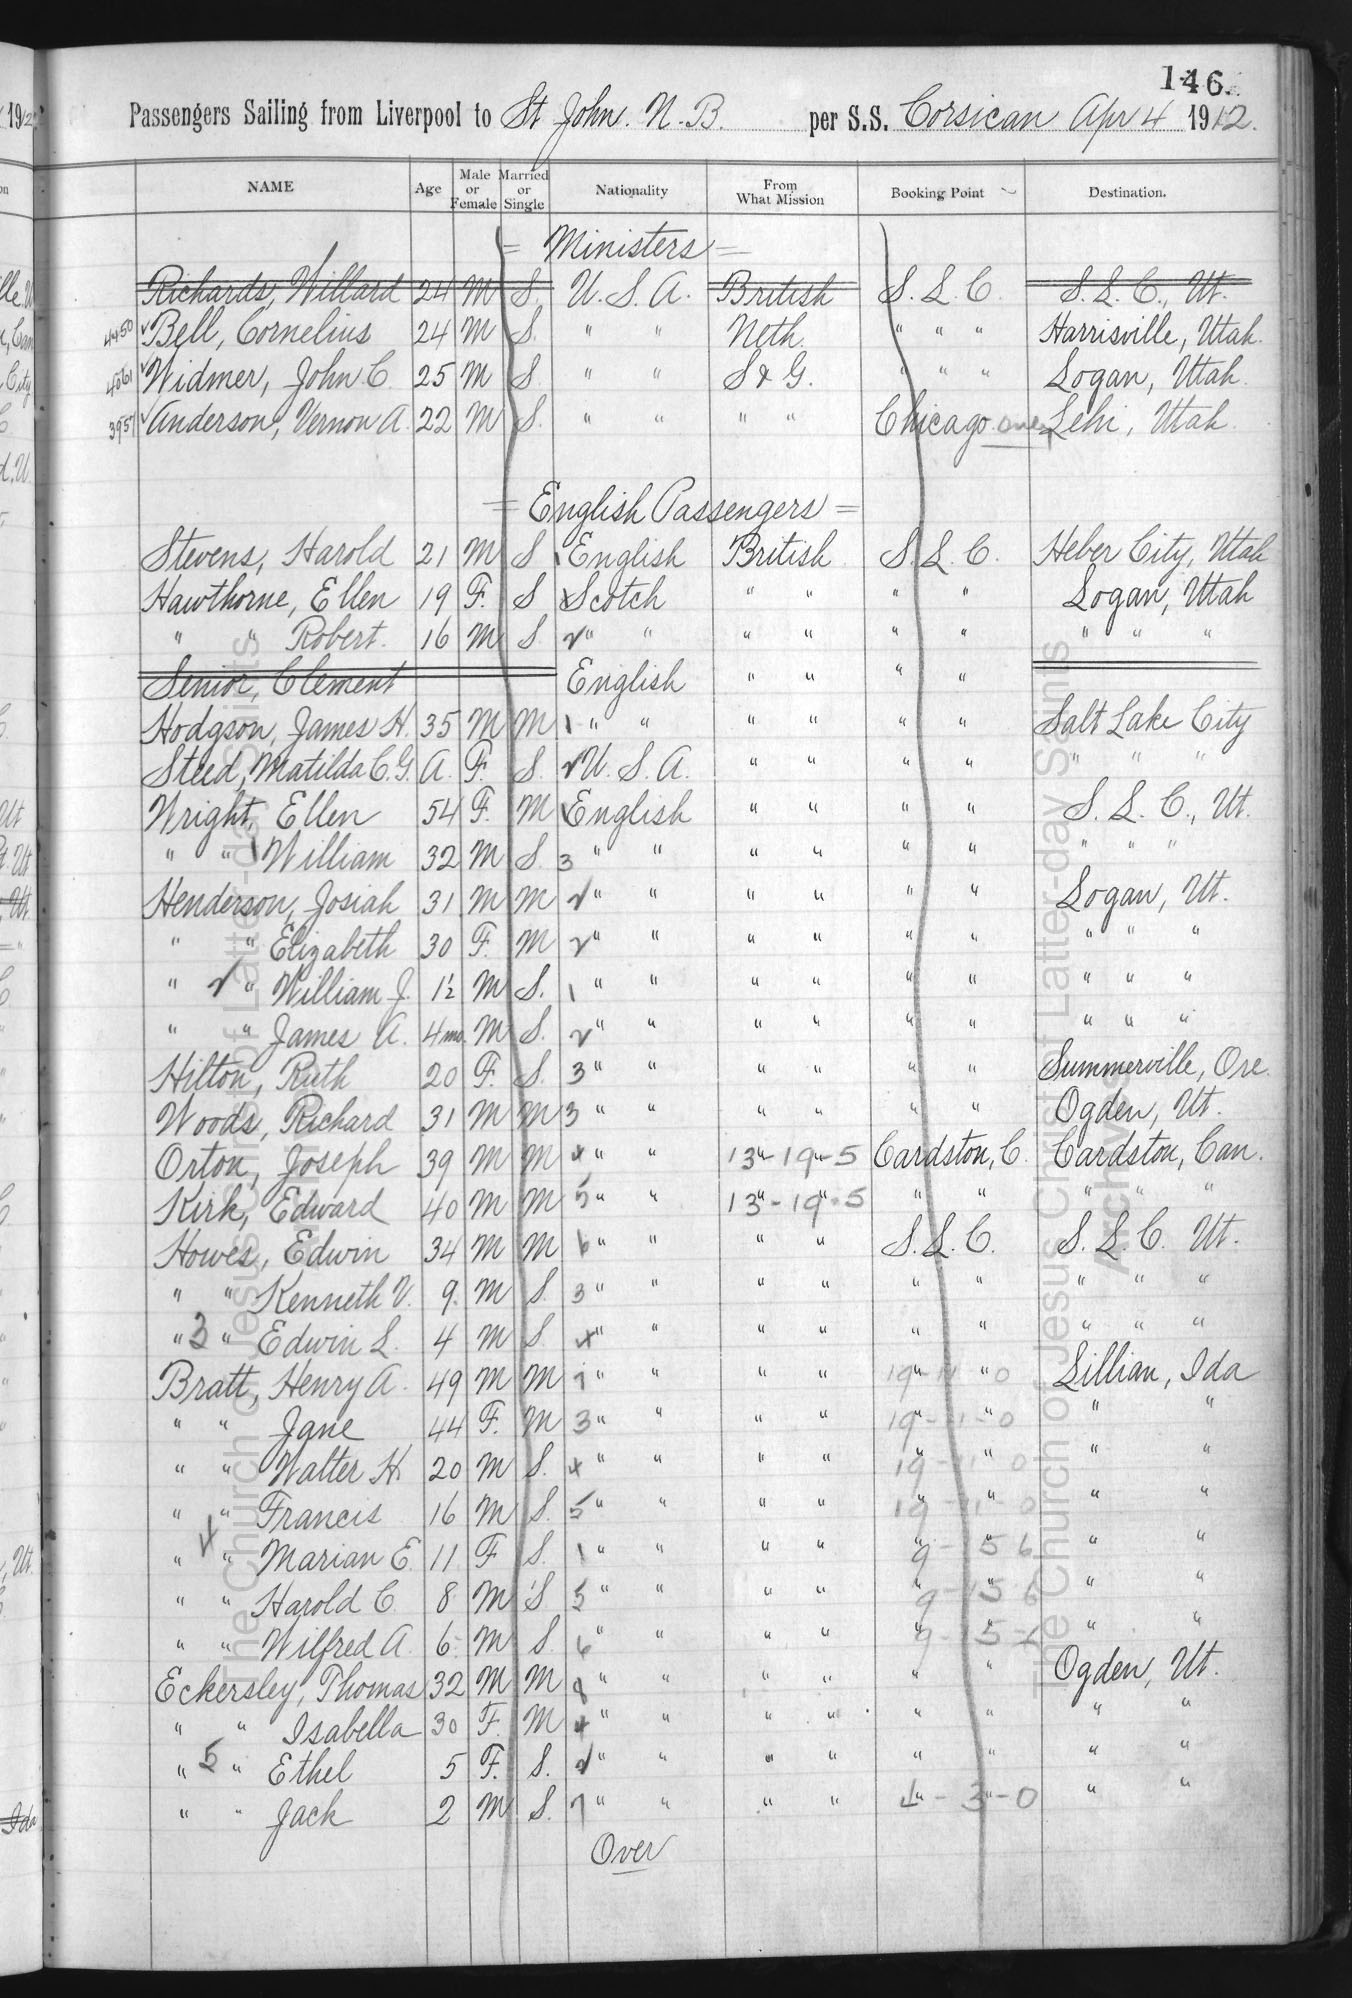 146.
Passengers Sailing from Liverpool to St John. N. B. per S.S. Corsican Apr 4 1912.
NAME Age Male or Female Married or Single Nationality From What Mission Booking Point Destination.
= Ministers =
Richards, Willard 24 M S. U. S. A. British S. L. C. S. L. C., Ut.
4450 Bell, Cornelius 24 M S. " " Neth. " " " Harrisville, Utah.
4061 Widmer, John C. 25 M S. " " S & G. " " " Logan, Utah.
3951 Anderson, Vernon A. 22 M S. " " " " Chicago Lehi, Utah.
= English Passengers =
Stevens, Harold 21 M S 1 English British S. L. C. Heber City, Utah
Hawthorne, Ellen 19 F. S Scotch " " " " Logan, Utah
" " Robert. 16 M S. 2 " " " " " " " " "
Senior, Clement English " " " "
Hodgson, James H. 35 M M 1 " " " " " " Salt Lake City
Steed, Matilda C. G. A. F. S. 2 U. S. A. " " " " " " "
Wright, Ellen 54 F. M English " " " " S. L. C., Ut.
" " 1 William 32 M S. 3 " " " " " " " " "
Henderson, Josiah 31 M M 2 " " " " " " Logan, Ut.
" " Elizabeth 30 F. M 2 " " " " " " " " "
" 2 " William J. 1½ M S. 1 " " " " " " " " "
" " James A. 4 mo. M S. 2 " " " " " " " " "
Hilton, Ruth 20 F. S. 3 " " " " " " Summerville, Ore.
Woods, Richard 31 M M 3 " " " " " " Ogden, Ut.
Orton, Joseph 39 M M 4 " " 13" - 19" - 5 Cardston, C. Cardston, Can.
Kirk, Edward 40 M M 5 " " 13" - 19" - 5 " " " " "
Howes, Edwin 34 M M 6 " " " " S. L. C. S. L. C. Ut.
" " Kenneth V. 9. M S. 3 " " " " " " " " "
" 3 " Edwin L. 4 M S. 4 " " " " " " " " "
Bratt, Henry A. 49 M M 7 " " " " 19 - 11 " 0 Lillian, Ida
" " Jane 44 F. M 3 " " " " 19 - 11 - 0 " "
" " Walter H. 20 M S. 4 " " " " 19 - 11 " 0 " "
" " Francis 16 M S. 5 " " " " 19 - 11 - 0 " "
" 4 " Marian E. 11 F S. 1 " " " " 9 - 15 6 " "
" " Harold C. 8 M S 5 " " " " 9 - 15 6 " "
" " Wilfred A. 6 M S. 6 " " " " 9 - 15 - 6 " "
Eckersley, Thomas 32 M M 8 " " " " " " Ogden, Ut.
" " Isabella 30 F. M 4 " " " " " " " "
" 5 " Ethel 5 F. S. 2 " " " " " " " "
" " Jack 2 M S. 7 " " " " 4" - 3" - 0 " "
Over
The Church of Jesus Christ of Latter-day Saints
The Church of Jesus Christ of Latter-day Saints
Archives